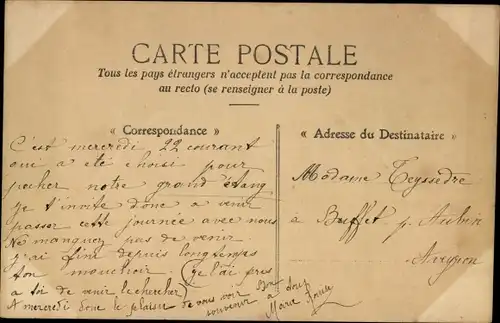 CARTE POSTALE
Tous les pays étrangers n'acceptent pas la correspondance
au recto (se renseigner à la poste)
« Correspondance »
« Adresse du Destinataire »
C'est mercredi 22 courant
qui a eté choisi pour
pecher notre grand étang
je t'invite donc a venir
passer cette journée avec nous
Ne manquez pas de venir
j'ai fini depuis longtemps
ton mouchoir (je l'ai pres
a toi de venir le chercher)
A mercredi donc le plaisir de vous voir
Bon
souvenir a
Marie
Madame Teyssedre
à Buffet p. Aubin
Aveyron